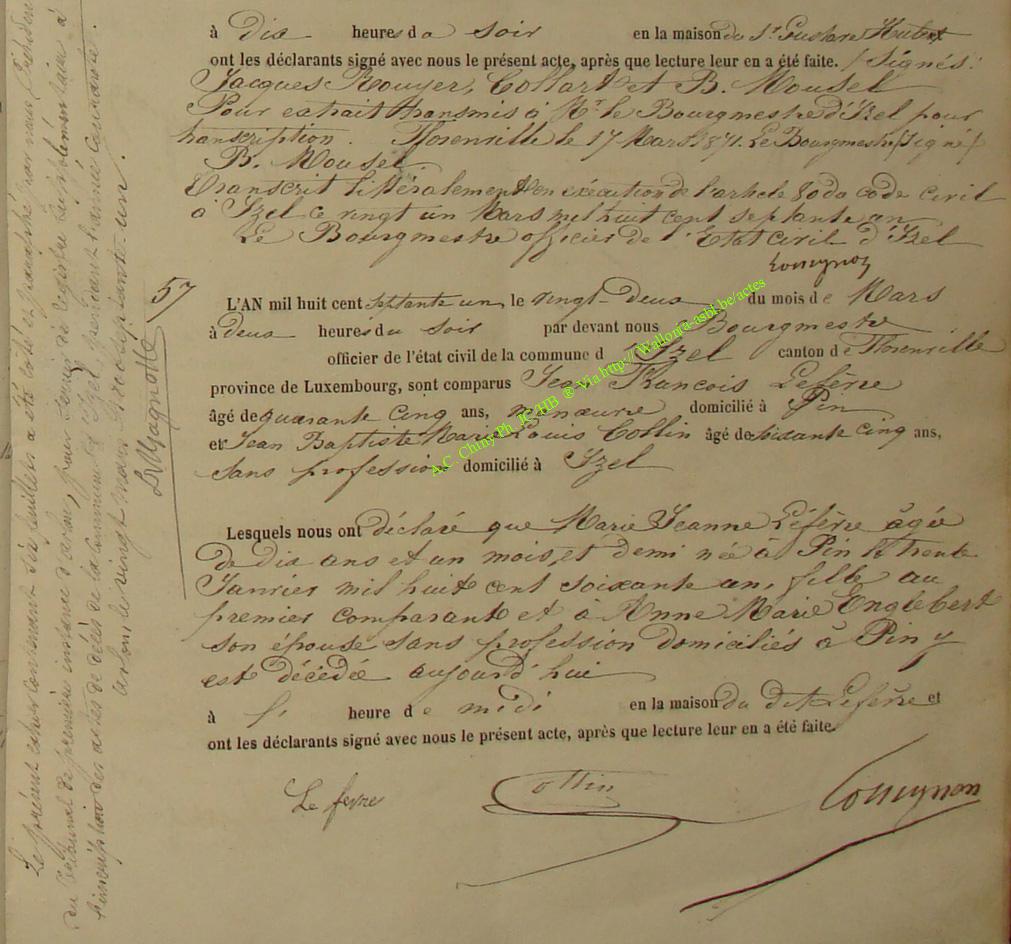 à dix heures du soir en la maison du Sr Gustave Hubert
ont les déclarants signé avec nous le présent acte, après que lecture leur en a été faite. / Signés:
Jacques Rouyer, Collart et B. Mousel
Pour extrait transmis à Mr le Bourgmestre d'Izel pour
transcription. Florenville le 17 Mars 1871. Le Bourgmestre /signé/
B. Mousel
Transcrit littéralement en exécution de l'article 80 du code civil
à Izel ce vingt un Mars mil huit cent septante un
Le Bourgmestre officier de l'Etat civil d'Izel
57
L'AN mil huit cent septante un, le vingt-deux du mois de Mars
à deux heures du soir par devant nous Bourgmestre
officier de l'état civil de la commune d'Izel canton de Florenville
province de Luxembourg, sont comparus Jean François Lefèvre
âgé de quarante cinq ans, manœuvre domicilié à Pin
et Jean Baptiste Marie Louis Collin âgé de soixante cinq ans,
sans profession domicilié à Izel
Lesquels nous ont déclaré que Marie Jeanne Léfèvre âgée
de dix ans et un mois et demi née à Pin le trente
Janvier mil huit cent soixante un, fille au
premier comparant et à Anne Marie Englebert
son épouse sans profession domiciliés à Pin y
est décédée aujourd'hui
à heure de midi en la maison du dit Lefèvre et
ont les déclarants signé avec nous le présent acte, après que lecture leur en a été faite.
Le fevre Collin
Le présent cahier contenant six feuillets a été coté et paraphé par nous, Président
du Tribunal de première instance d'arlon, pour servir de registre supplémentaire à
l'inscription des actes de décès de la commune d'Izel, pendant l'année courante.
arlon, le vingt mars dix huit cent septante-un.
A.C. Chiny Ph. JC HB ® Via http://Wallonia-asbl.be/actes